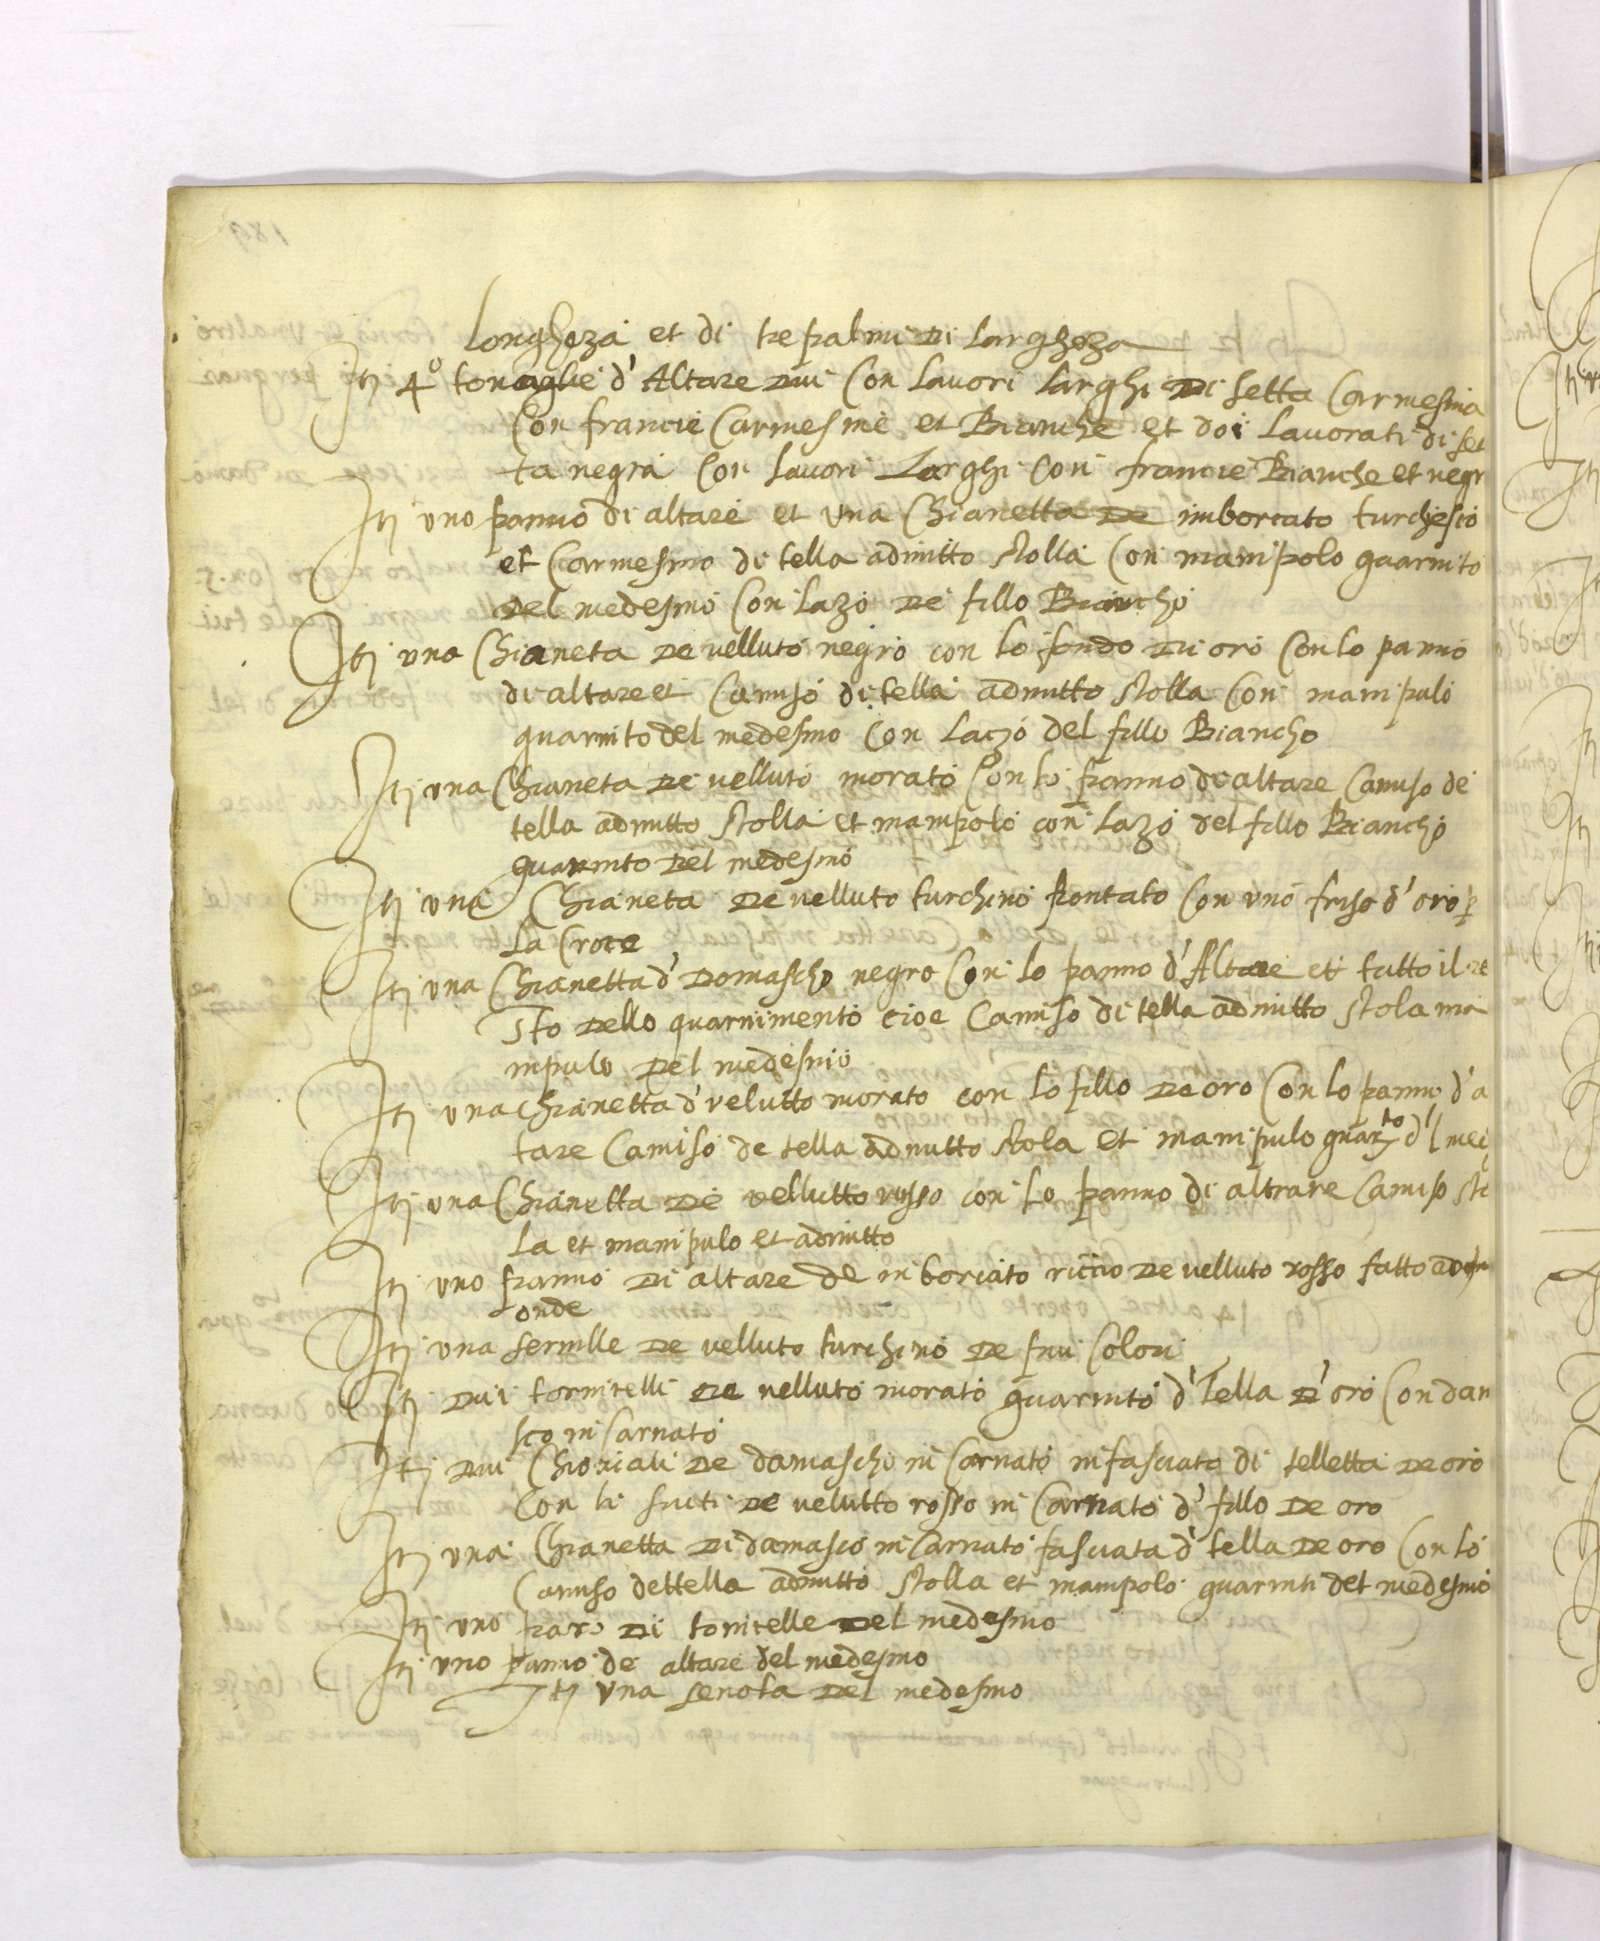 longheza et di tre palmi di largheza
Itj 4° tonaglie d'Altare dui con lauori larghi di setta Carmesina
Con francie Carmesine et Bianche et doi lauorati di set
ta negra Con lauori Larghi con francie Bianche et negr
Itj uno panno di altare et una Chianetta de imborcato turchesco
et Carmesino di tella admitto stolla Con manipolo guarnito
del medesmo Con lazo de fillo Biancho
Itj una Chianeta de velluto negro con lo fondo di oro Con lo panno
di altare et Camiso di tella admitto stolla Con manipulo
guarnito del medesmo Con laczo del fillo Biancho
Itj una Chianeta de velluto morato Con lo panno di altare Camiso de
tella admitto stolla et manipolo con lazo del fillo Biancho
guarnito del medesmo
Itj una Chianeta de velluto turchino pontato Con uno friso d'oro p
La Croce
Itj una Chianetta d'Domascho negro Con lo panno d'Altare et tutto il re
sto dello guarnimento cioe Camiso di tella admitto stola ma
nipulo del medesmo
Itj una Chianetta d'velutto morato con lo fillo de oro Con lo panno d'a
tare Camiso de tella admitto stola et manipulo guar.to d'l med
Itj una Chianetta de vellutto rosso con lo panno di altrare Camiso sto
la et manipulo et admitto
Itj uno panno di altare de inborcato riccio de velluto rosso fatto ad
onde
Itj una de velluto turchino de Colori
Itj dui tornitelli de velluto morato guarnito d'Tella d'oro Con dam
sco in Carnato
Itj dui Chioriali de damascho in Carnato infasciato di telletta de oro
Con li de velutto rosso in Carnato d'fillo de oro
Itj una Chianetta di damasco in Carnato fasciata d'tella de oro Con lo
Camiso dettella admitto stolla et manipolo guarniti del medesmo
Itj uno paro di tonicelle del medesmo
Itj uno panno de altare del medesmo
Itj una del medesmo